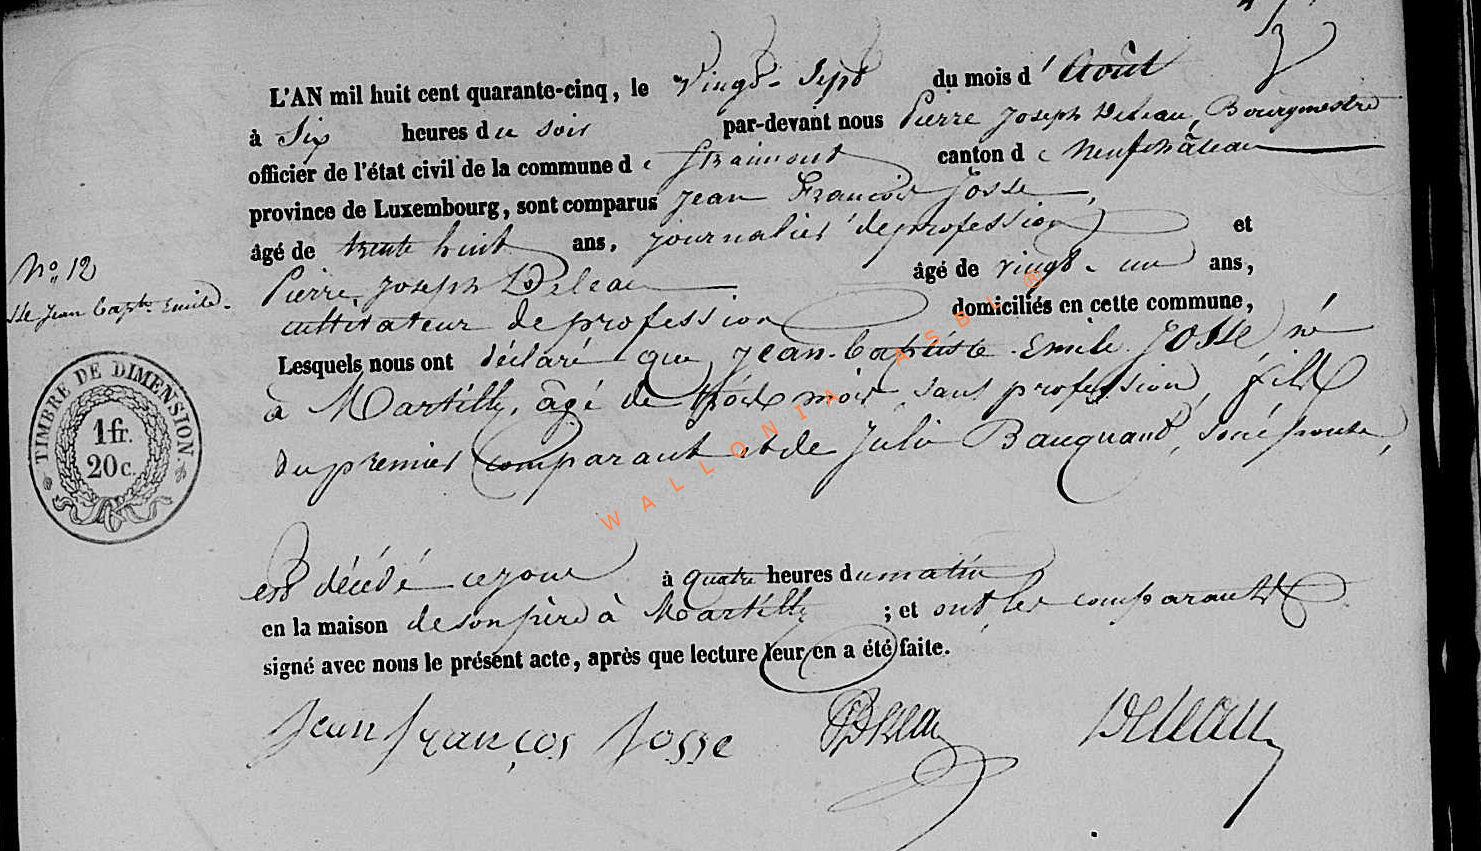 L'AN mil huit cent quarante-cinq, le Vingt-Sept du mois d'Août
à Six heures du soir par-devant nous Pierre Joseph Deleau, Bourgmestre
officier de l'état civil de la commune de Straimont canton de Neufchâteau
province de Luxembourg, sont comparus Jean François Josse,
âgé de trente huit ans, journalier de profession et
Pierre Joseph Deleau âgé de vingt-un ans,
cultivateur de profession domiciliés en cette commune,
Lesquels nous ont déclaré que Jean-baptiste Emile Josse né
à Martilly, âgé de trois mois sans profession, fils
du premier comparant et de Julie Bauquand, son épouse,
est décédé ce jour à quatre heures du matin
en la maison de son père à Martilly ; et ont les comparants
signé avec nous le présent acte, après que lecture leur en a été faite.
Jean françois Josse Deleau
No. 12
Jean bapte Emile.
TIMBRE DE DIMENSION
1 fr.
20 c.
WALLONIA ASBL ®